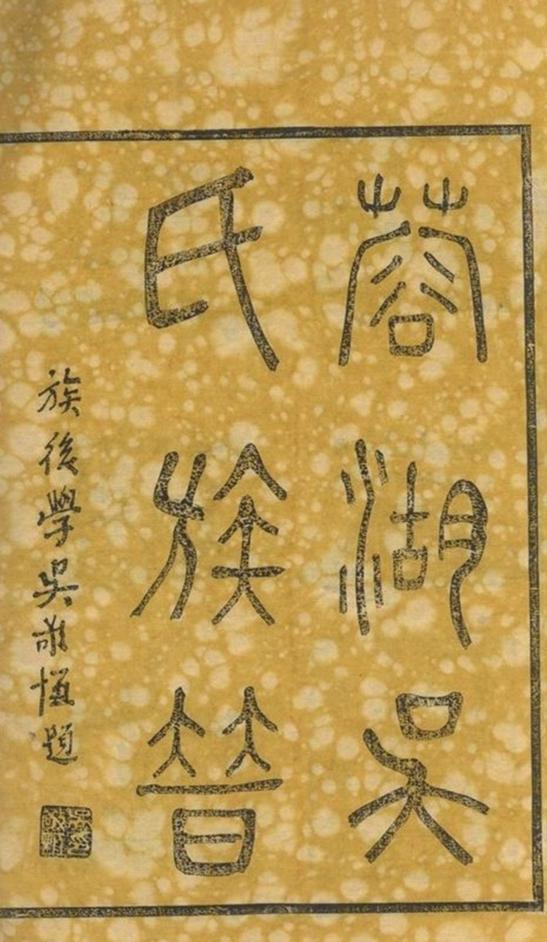 蓉湖吳
氏族普
族後學吳敬恆題